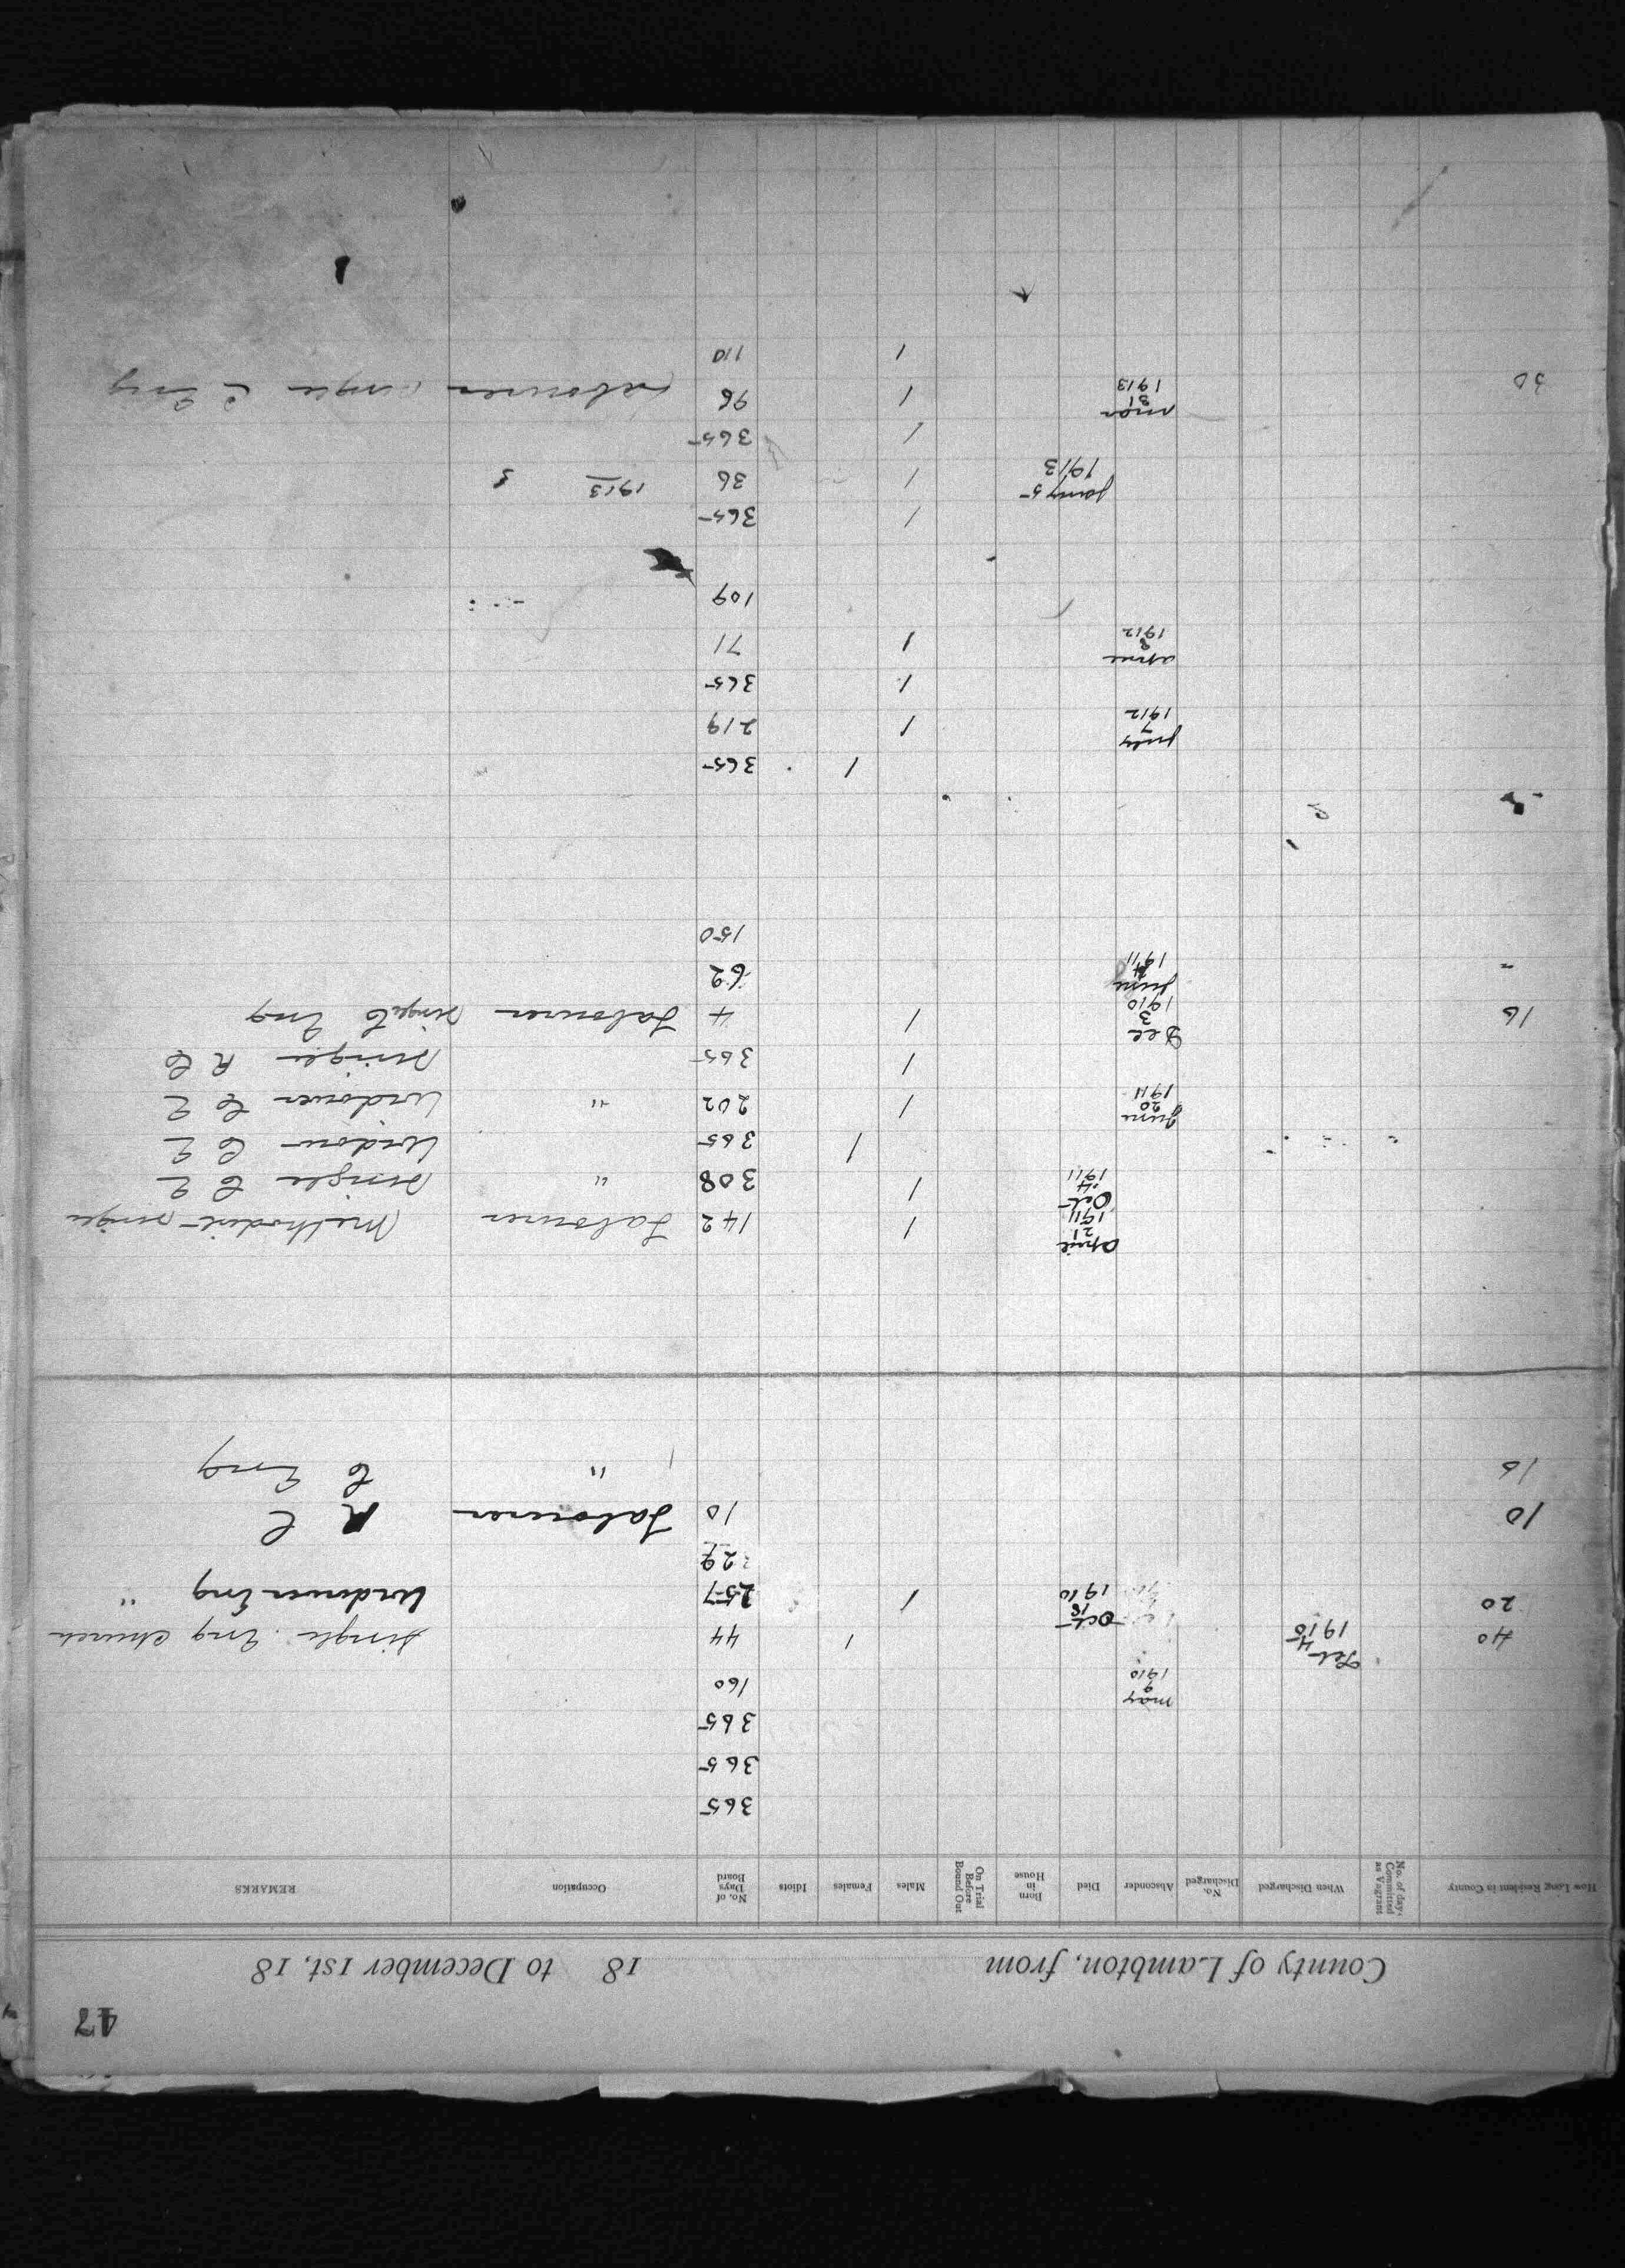 47
County of Lambton, from 18 to December 1st, 18
How Long Resident in County | No. of days Committed as Vagrant | When Discharged | No. Discharged | Absconder | Died | Born in House | On Trial Before Bound Out | Males | Females | Idiots | No. of Days Board | Occupation | REMARKS
365
365
365
May 9 1910 160
40 Feb 4 1910 1 44 single Eng Church
20 Oct 18 1910 1 257 Widower Eng "
10 10 Labourer R C
16 " C Eng
April 21 1911 1 142 Labourer Methodist single
Oct 4 1911 1 308 " single C E
1 365 Widow C E
June 20 1911 1 202 " Widower C E
1 365 single R C
16 Dec 3 1910 1 4 Labourer single C Eng
" June 1911 62
150
1 365
July 7 1912 1 219
1 365
April 8 1912 1 71
109
1 365
Jany 5 1913 1 36 1913
1 365
30 Mar 31 1913 1 96 Labourer single C Eng
1 110